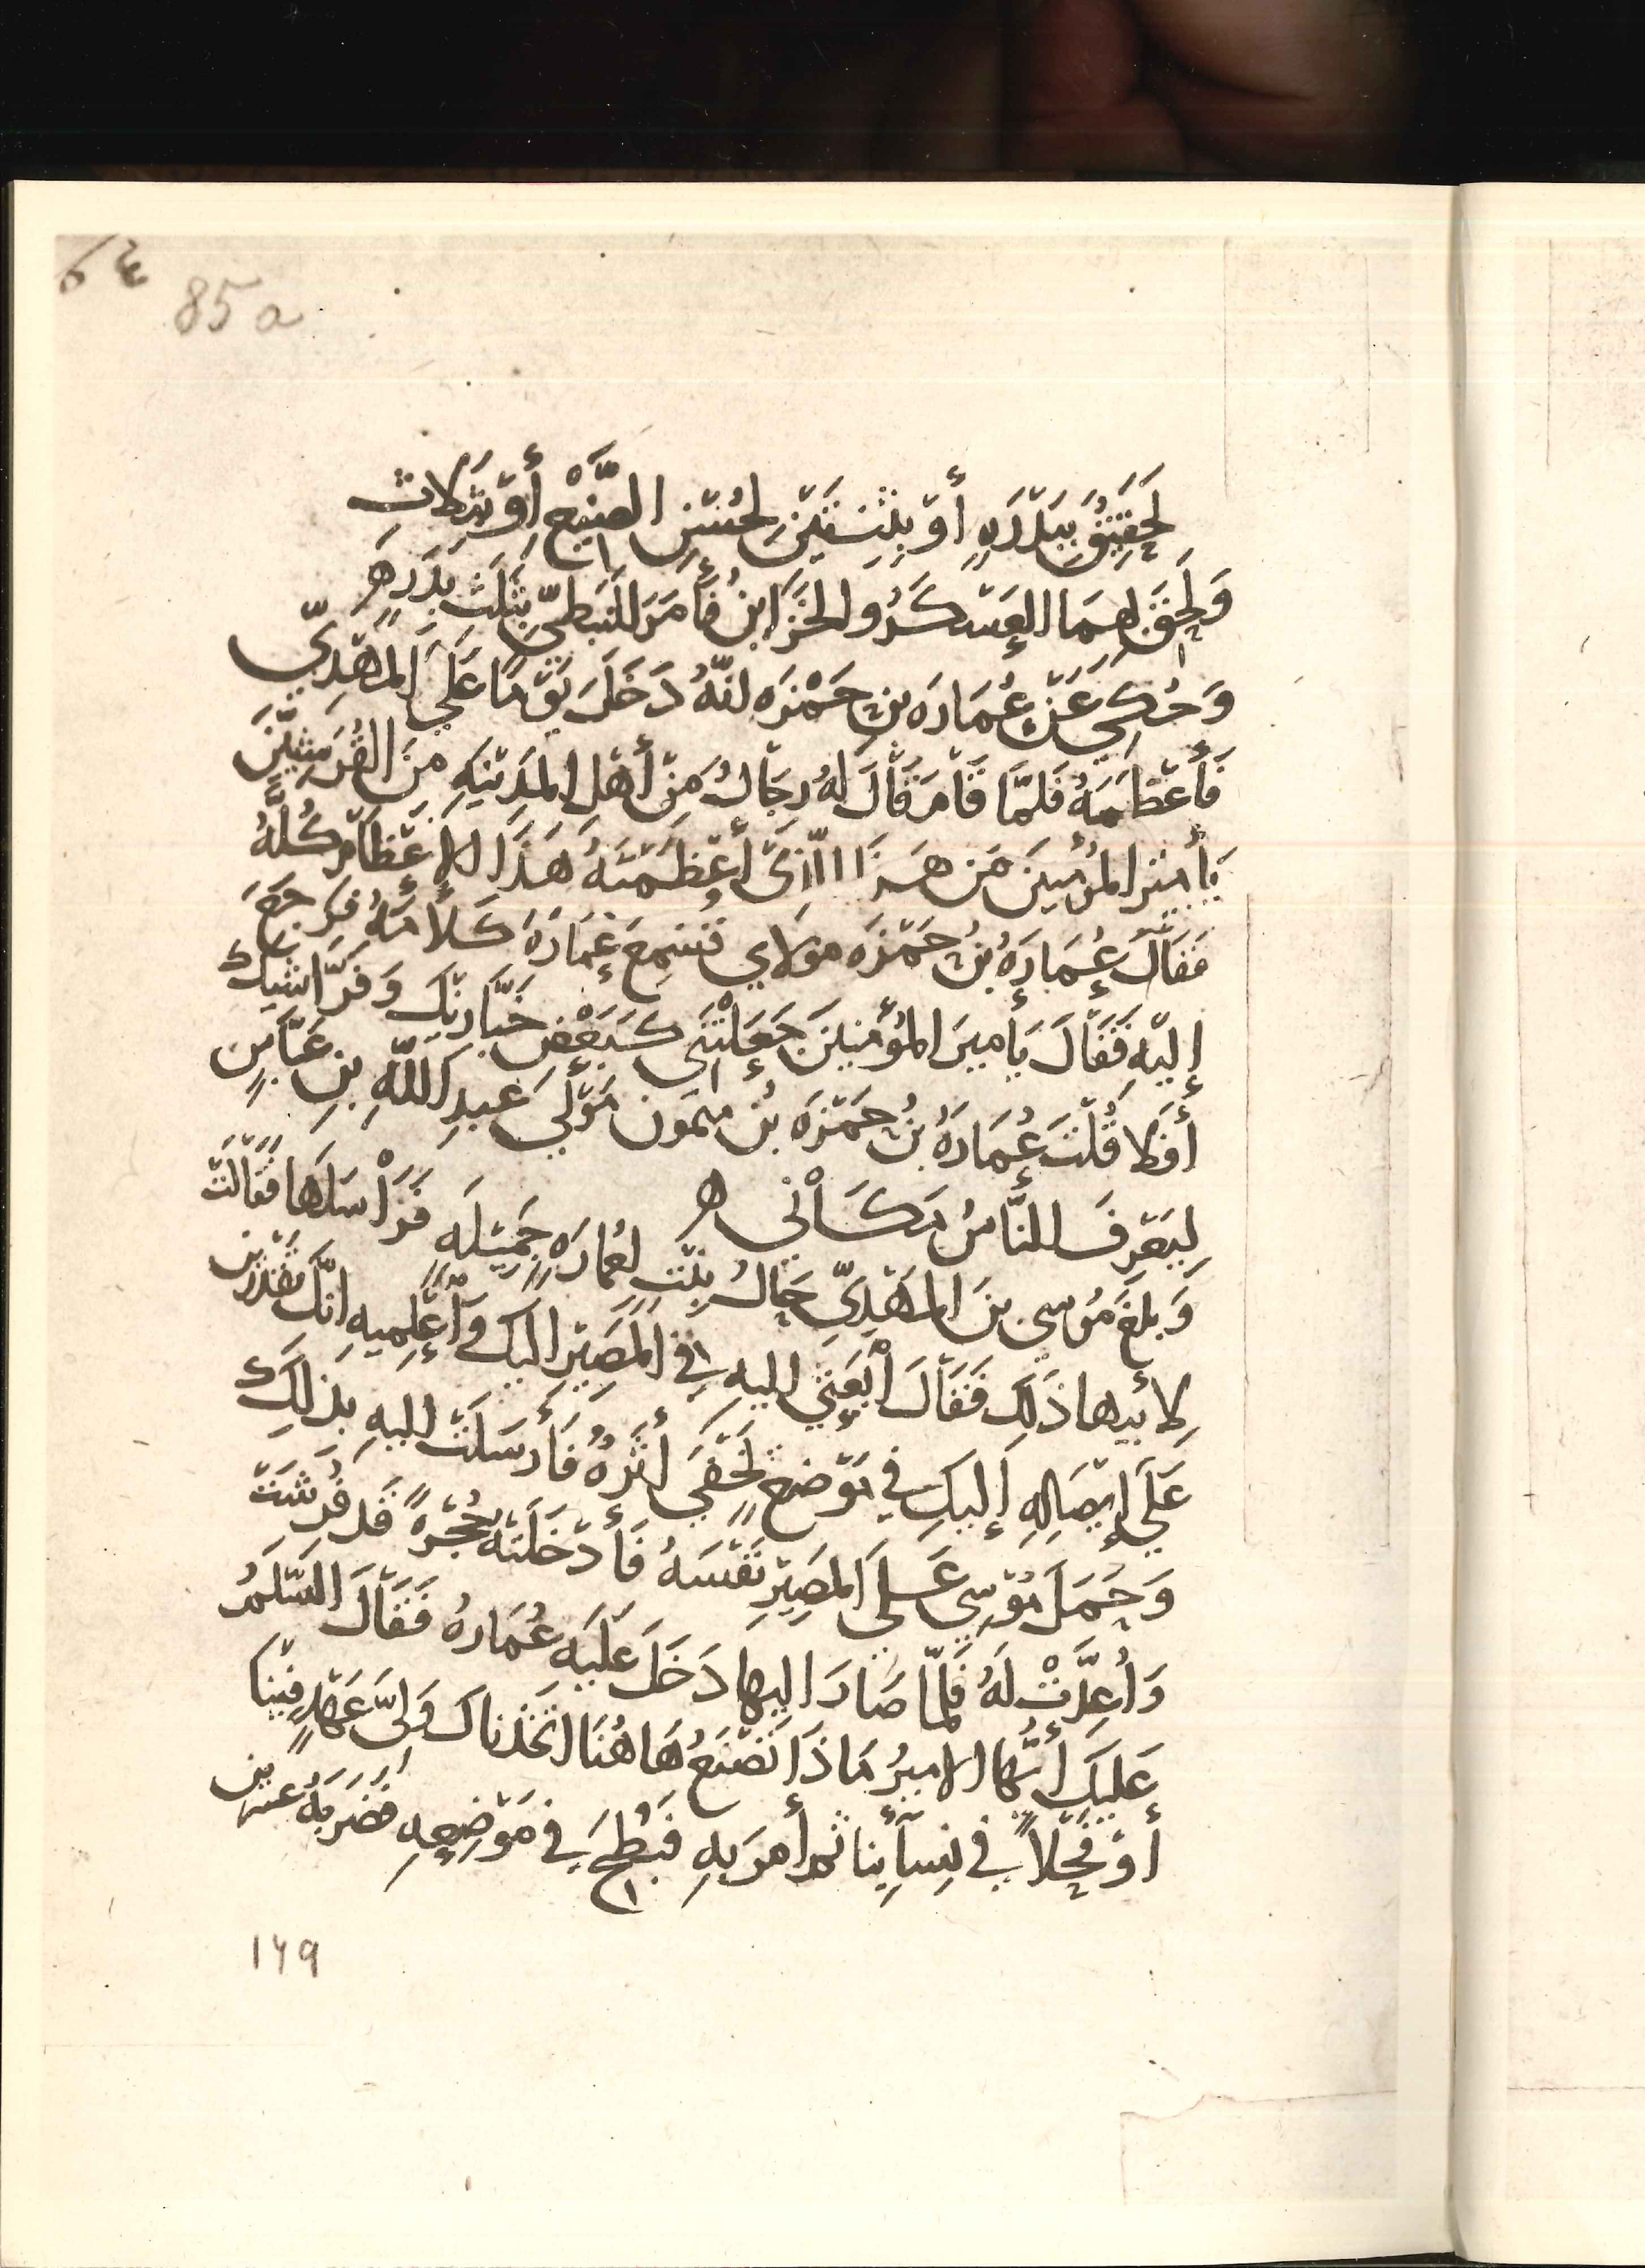 ٤ ٥
85 a
لَحَقِيقٌ بِبَدْرَهٍ أَوْ بِثِنتَيْنِ لِحُسْنِ الصَّنِيعْ أَوْ بِثَلاثِ
وَلَحِقَ بِهِمَا العَسْكَرُ والخَزَاينُ فَأَمَرَ للنَبَطِيّ بِثَلثِ بِدَرٍ ه
وَحُكِيَ عَنْ عُمَارَه بنِ حَمْزَه انّهُ دَخَلَ يَوْمًا عَلَي المَهْدِيّ
فَأَعْظَمَهُ فَلَمّا قَامَ قَالَ لهُ رِجَالٌ مِنْ أَهْلِ المَدِيْنَهِ مِنَ القُرَشِيّيْنَ
يَأَمِيْرَ المُؤْمِنينَ مَن هَذَا الّذِيْ أَعْظَمْتَهُ هَذَا الإِعْظَامَ كُلَّهُ
فَقَالَ عُمَارَهُ بْنُ حَمْزَه مَولَاي فسَمِعَ عُمَارَهُ كَلَامَهُ فرَجَعَ
إِليْهِ فَقَالَ يَأميرَ المُؤْمِنينَ جَعَلْتَنِي كَبَعْضِ خَبَّازِيْكَ وَفَرَّاشِيْكَ
أَفَلَا قُلْتَ عُمَارَهُ بْنُ حَمْزَهَ بْنُ مَيمُون مَوْلَي عَبدِ اللّهِ بْنِ عَبّاسٍ
لِيَعْرِفَ النَّاسُ مَكَاْنِي ه
وَبلغَ مُوسي بنَ المَهْدِيِّ جَمالُ بِنْتٍ لِعُمارَهٍ جَمِيْلَهٍ فَرَاْسَلَهَا فقَالَتْ
لِأبيها ذَلِكَ فَقَالَ ابْعَثِي إليهِ فِي المَصِيْرِ اليكِ وَأَعْلِمِيهِ انّكِ تقْدِرِين
عَلَي إِيْصَالِهِ إِليكِ في مَوْضِعٍ يَخْفَي أَثَرُهُ فَأَرْسَلَتْ إليهِ بذلِكَ
وَحَمَلَ مُوْسِي عَلَي المَصِيْرِ نَفْسَهُ فَأَدْخَلَتْهُ حُجْرَهً قَد فُرِشَتْ
وَأُعِدَّتْ لَهُ فَلمّا صَارَ اليها دَخَلَ عَلَيهِ عُمَارهُ فَقَالَ السَّلَمُ
عَليكَ أَيُّهَا الاميرُ مَاذَا تَصْنَعُ هَاهُنَا اتّخَذْناكَ وَلِيَّ عَهْدٍ فِيْنا
أَوْ فَحْلاً فِي نِسَآئِنا ثم أَمَرَ بِهِ فَبُطِحَ فِي مَوْضِعِهِ فَضَرَبَهُ عشرِين
١٦٩